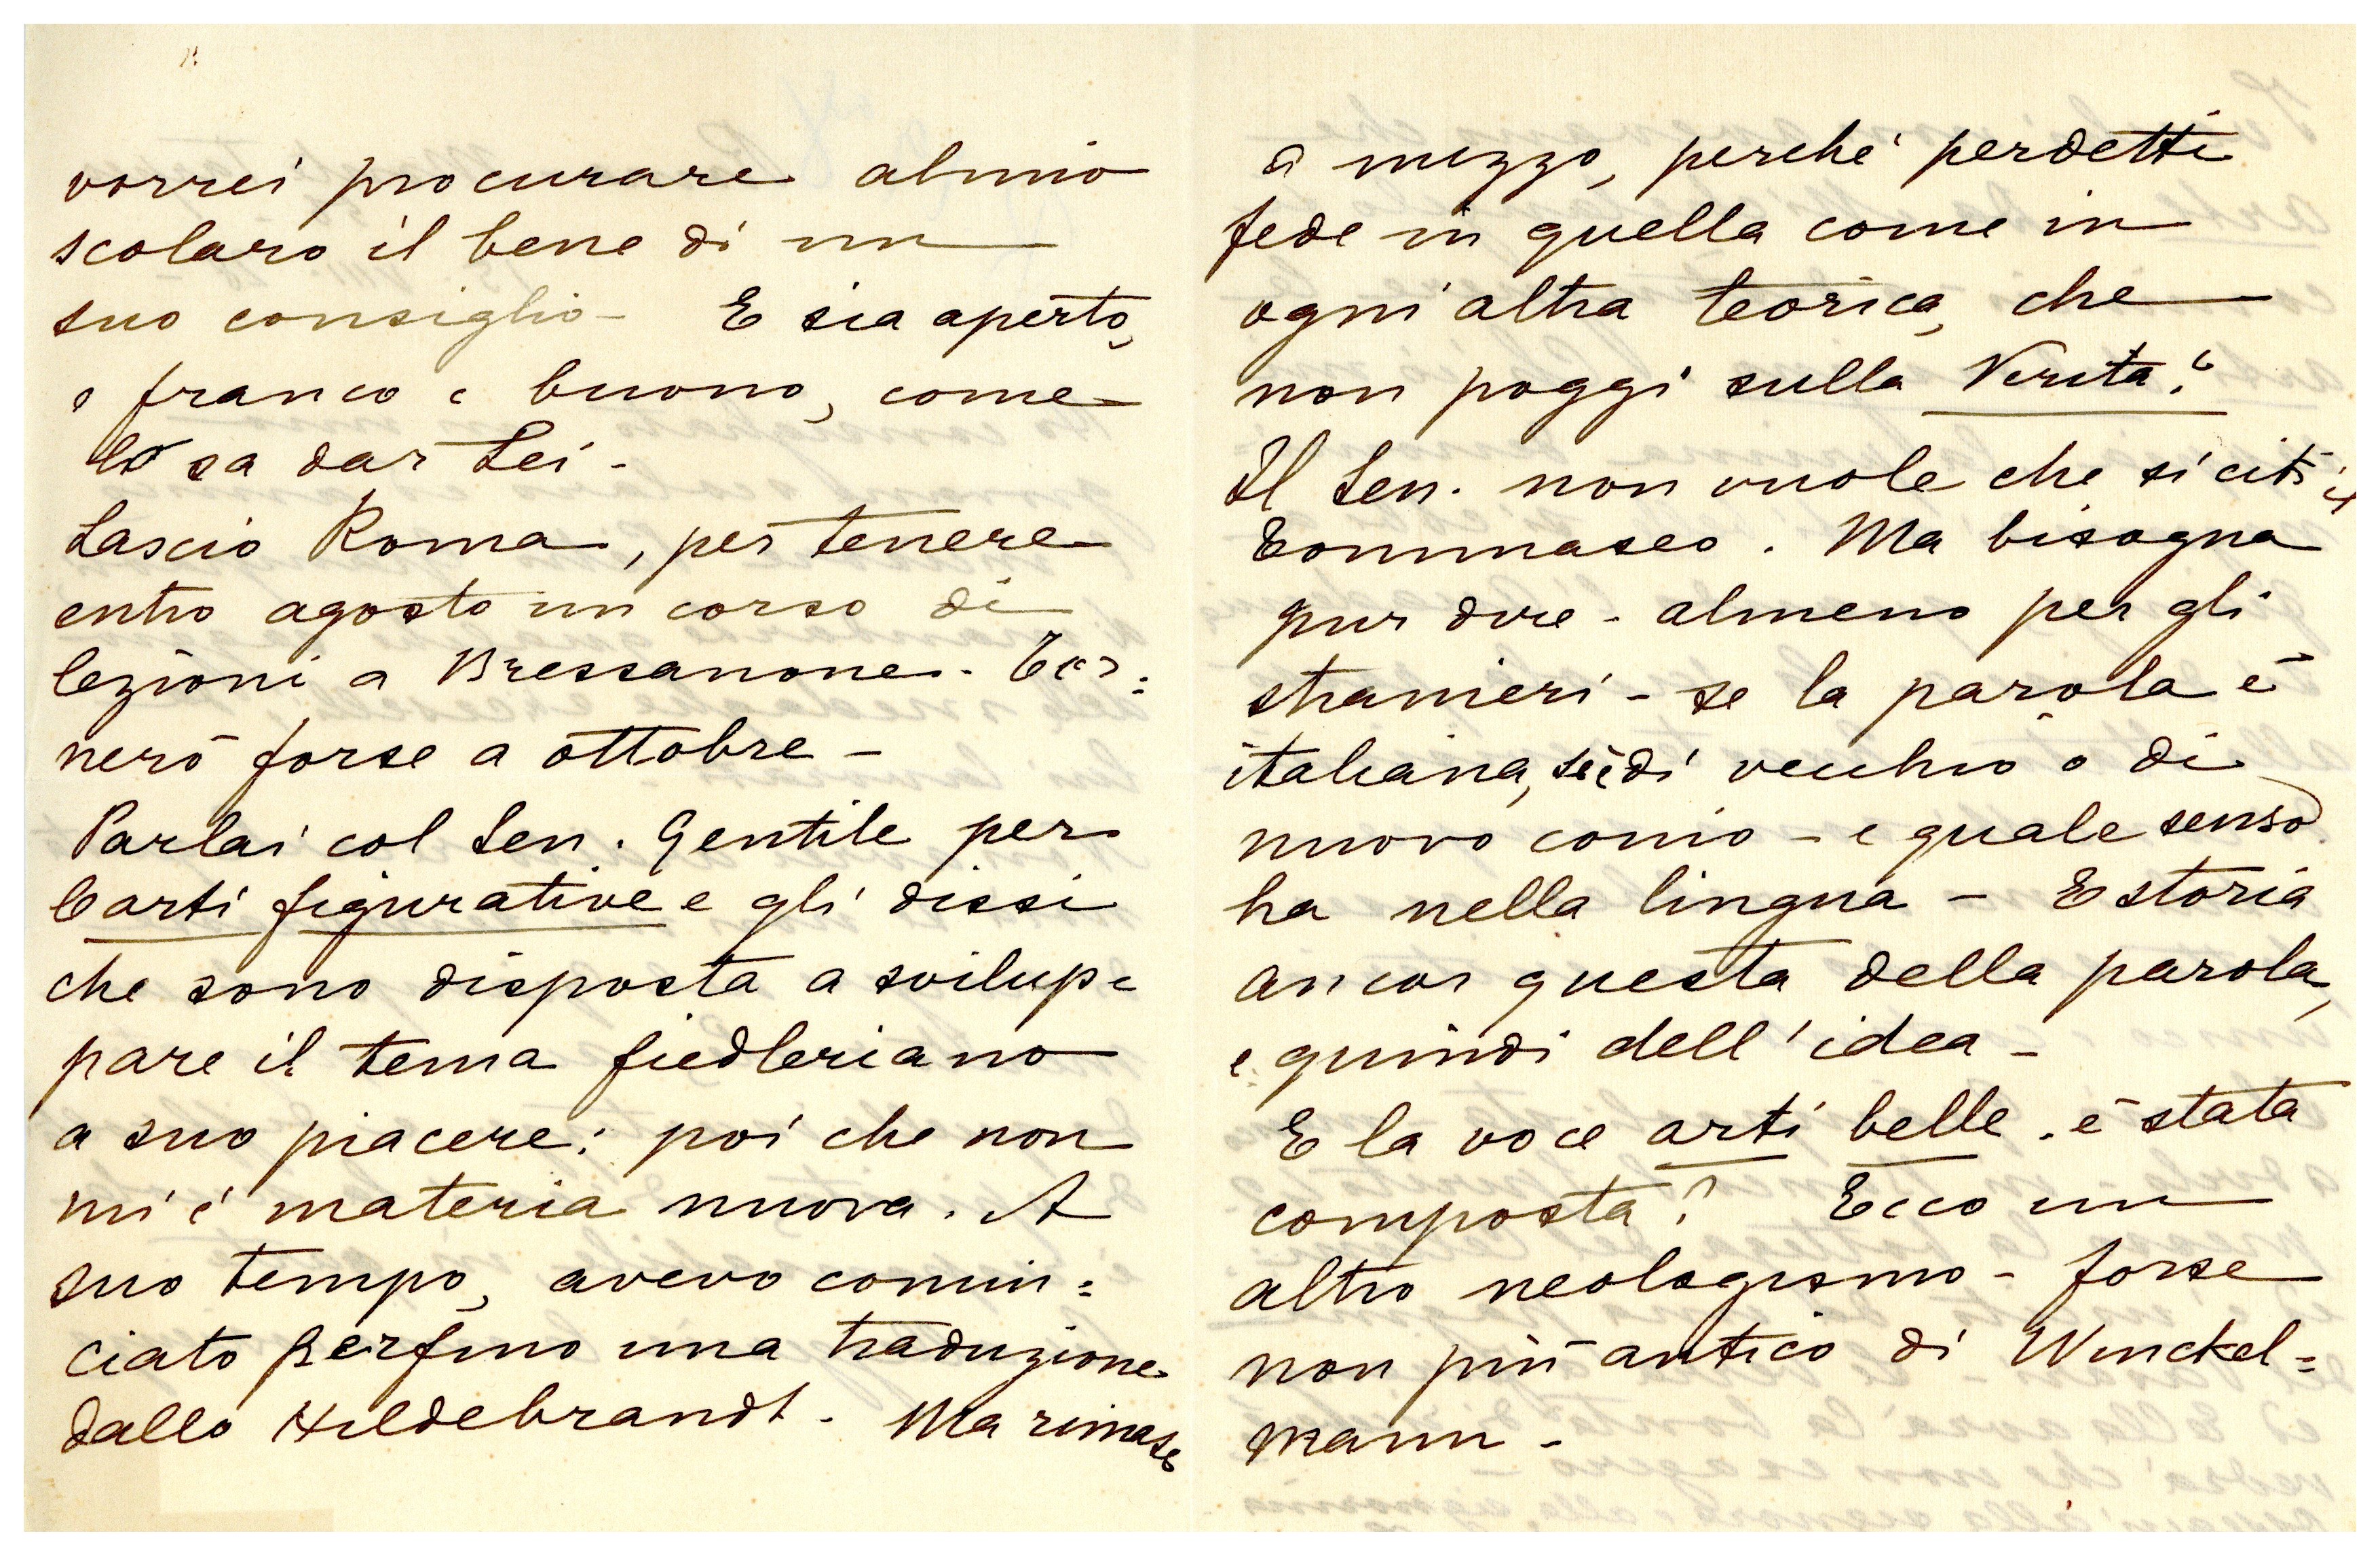 vorrei procurare al mio
scolaro il bene di un
suo consiglio – E sia aperto,
e franco e buono, come
lo sa dar Lei –
Lascio Roma, per tenere
entro agosto un corso di
lezioni a Bressanone. Tor=
nerò forse a ottobre –
Parlai col Sen. Gentile per
l'arti figurative e gli dissi
che sono disposta a svilup=
pare il tema fiedleriano
a suo piacere: poi che non
mi è materia nuova. A
suo tempo, avevo comin=
ciato perfino una traduzione
dallo Hildebrandt. Ma rimase
a mezzo, perché perdetti
fede in quella come in
ogni altra teorica, che
non poggi sulla Verità.
Il Sen. non vuole che si citi il
Tommaseo. Ma bisogna
pur dire – almeno per gli
stranieri – se la parola è
italiana, se è di vecchio o di
nuovo conio – e quale senso
ha nella lingua – E storia
ancor questa della parola,
e quindi dell'idea –
E la voce arti belle. è stata
composta? Ecco un
altro neologismo – forse
non più antico di Winckel=
mann –